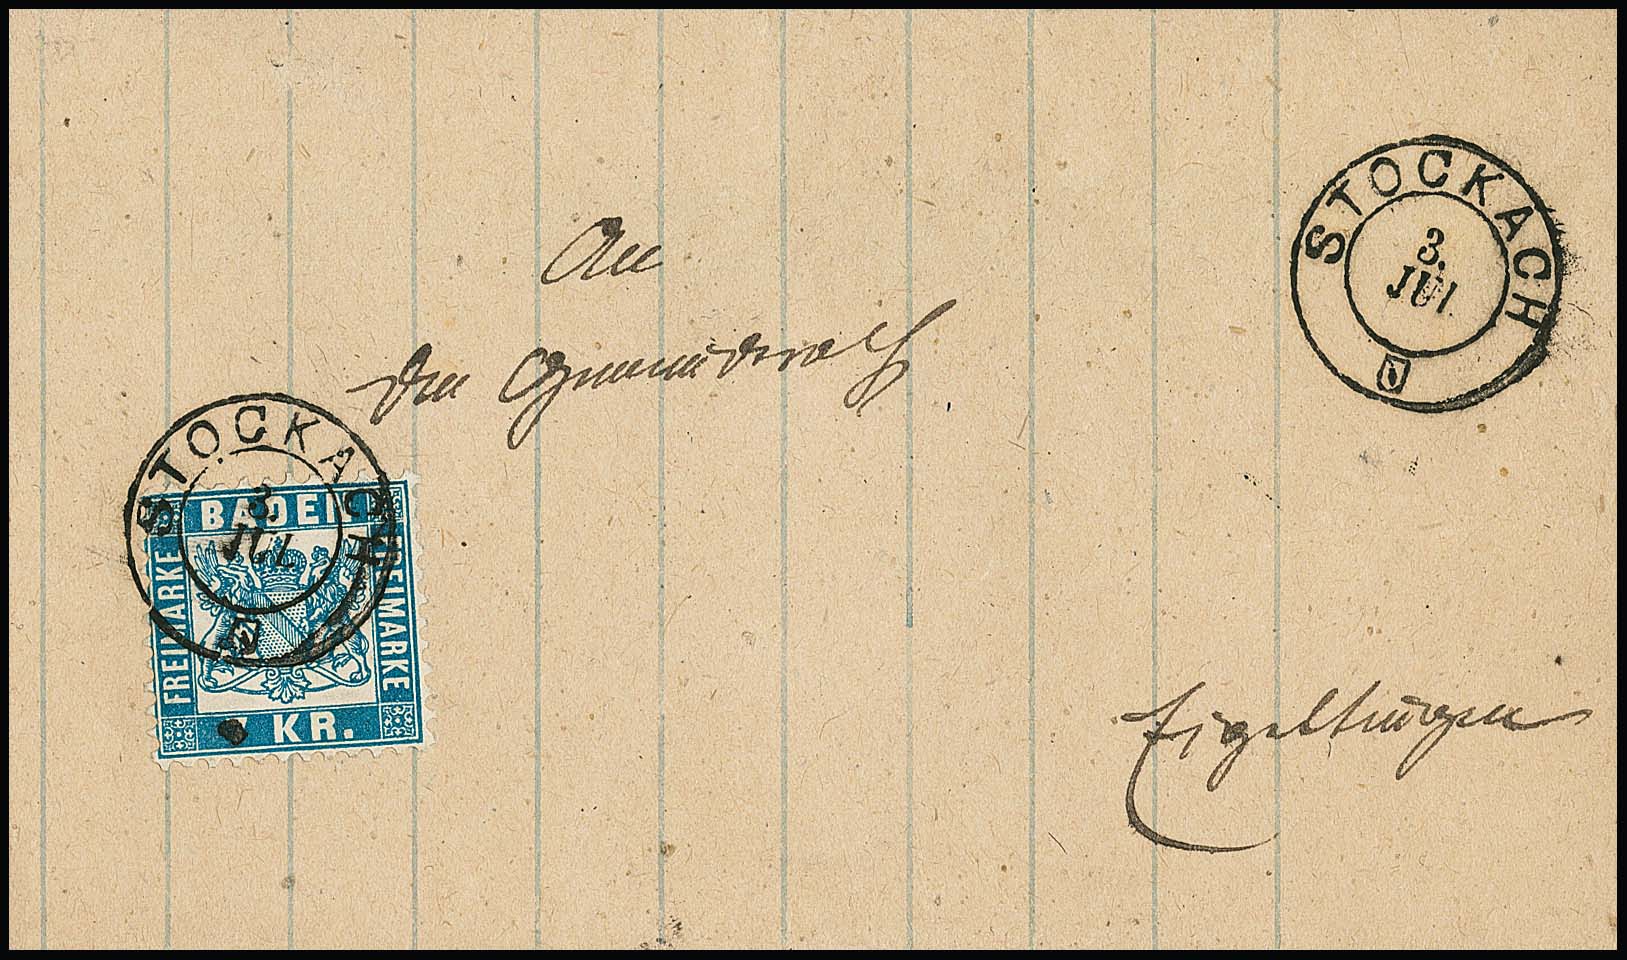 STOCKACH
3.
JUL
An
den Gemeinderath
STOCKACH
3.
JUL
BADEN
FREIMARKE
FREIMARKE
KR.
Eigeltingen